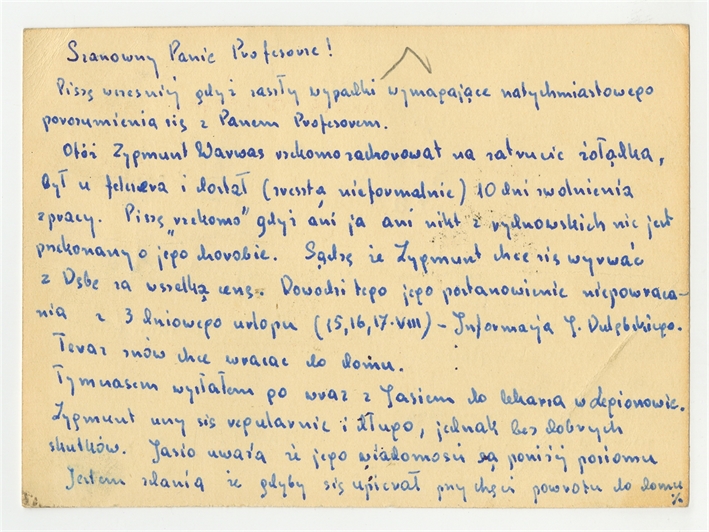 Szanowny Panie Profesorze!
Piszę wcześniej gdyż zaszły wypadki wymagające natychmiastowego
porozumienia się z Panem Profesorem.
Otóż Zygmunt Warwas rzekomo zachorował na zatrucie żołądka,
był u felczera i dostał (zresztą nieformalnie) 10 dni zwolnienia
z pracy. Piszę "rzekomo" gdyż ani ja ani nikt z rydnowskich nie jest
przekonany o jego chorobie. Sądzę że Zygmunt chce się wyrwać
z Dębe za wszelką cenę. Dowodzi tego jego postanowienie niepowraca-
nia z 3 dniowego urlopu (15,16,17.VIII) - Informacja J. Dulębskiego.
Teraz znów chce wracać do domu.
Tymczasem wysłałem go wraz z Jasiem do lekarza w Legionowie.
Zygmunt uczy się regularnie i długo, jednak bez dobrych
skutków. Jasio uważa że jego wiadomości są poniżej poziomu
Jestem zdania że gdyby się upierał przy chęci powrotu do domu
%